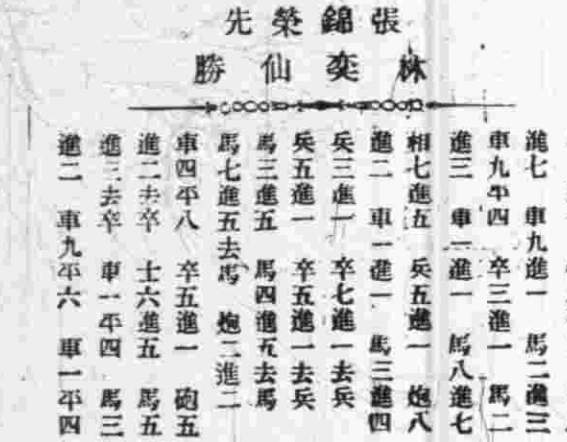 張錦榮先
林奕仙勝
進七 車九進一 馬二進三
車九平四 卒三進一 馬二
進三 車一進一 馬八進七
相七進五 兵五進一 炮八
進二 車一進一 馬三進四
兵三進一 卒七進一去兵
兵五進一 卒五進一去兵
馬三進五 馬四進五去馬
馬七進五去馬 炮二進二
車四平八 卒五進一 砲五
進二去卒 士六進五 馬五
進三去卒 車一平四 馬三
進二 車九平六 車一平四